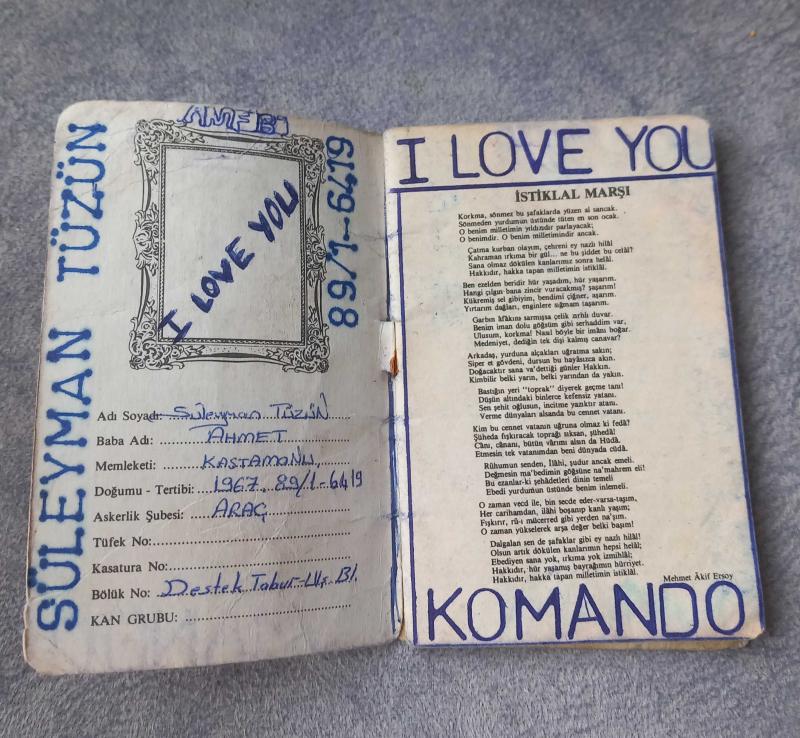 SÜLEYMAN TÜZÜN
I LOVE YOU
89/1-6419
Adı Soyadı: Süleyman TÜZÜN
Baba Adı: AHMET
Memleketi: KASTAMONU
Doğumu - Tertibi: 1967. 89/1-6419
Askerlik Şubesi: ARAÇ
Tüfek No:
Kasatura No:
Bölük No: Destek Tabur-Ulş. Bl.
KAN GRUBU:
I LOVE YOU
İSTİKLAL MARŞI
Korkma, sönmez bu şafaklarda yüzen al sancak.
Sönmeden yurdumun üstünde tüten en son ocak.
O benim milletimin yıldızıdır parlayacak;
O benimdir. O benim milletimindir ancak.
Çatma kurban olayım, çehreni ey nazlı hilâl
Kahraman ırkıma bir gül... ne bu şiddet bu celâl?
Sana olmaz dökülen kanlarımız sonra helâl.
Hakkıdır, hakka tapan milletimin istiklâl.
Ben ezelden beridir hür yaşadım, hür yaşarım.
Hangi çılgın bana zincir vuracakmış? şaşarım!
Kükremiş sel gibiyim, bendimi çiğner, aşarım.
Yırtarım dağları, enginlere sığmam taşarım.
Garbın âfâkını sarmışsa çelik zırhlı duvar.
Benim iman dolu göğsüm gibi serhaddim var,
Ulusum, korkma! Nasıl böyle bir imânı boğar.
Medeniyet, dediğin tek dişi kalmış canavar?
Arkadaş, yurduna alçakları uğratma sakın;
Siper et gövdeni, dursun bu hayâsızca akın.
Doğacaktır sana va'dettiği günler Hakkın.
Kimbilir belki yarın, belki yarından da yakın.
Bastığın yeri "toprak" diyerek geçme tanı!
Düşün altındaki binlerce kefensiz yatanı.
Sen şehit oğlusun, incitme yazıktır atanı.
Verme dünyaları alsanda bu cennet vatanı.
Kim bu cennet vatanın uğruna olmaz ki fedâ?
Şüheda fışkıracak toprağı sıksan, şühedâ!
Cânı, cânanı, bütün vârımı alsın da Hüdâ.
Etmesin tek vatanımdan beni dünyada cüdâ.
Rûhumun senden, İlâhi, şudur ancak emeli.
Değmesin ma'bedimin göğsüne na'mahrem eli!
Bu ezanlar-ki şehâdetleri dinin temeli
Ebedi yurdumun üstünde benim inlemeli.
O zaman vecd ile, bin secde eder-varsa-taşım,
Her carihamdan, ilâhi boşanıp kanlı yaşım;
Fışkırır, rû-ı mücerred gibi yerden na'şım.
O zaman yükselerek arşa değer belki başım!
Dalgalan sen de şafaklar gibi ey nazlı hilâl!
Olsun artık dökülen kanlarımın hepsi helâl;
Ebediyen sana yok, ırkıma yok izmihlâl;
Hakkıdır, hür yaşamış bayrağımın hürriyet.
Hakkıdır, hakka tapan milletimin istiklâl.
Mehmet Âkif Ersoy
KOMANDO